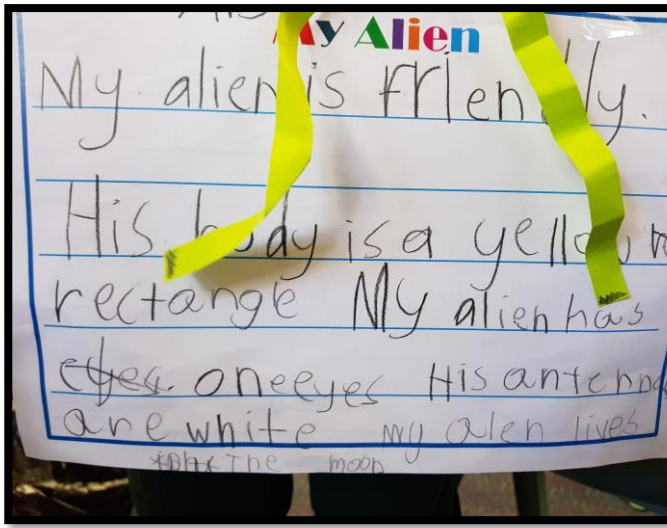 My Alien
My alien is friendly.
His body is a yellow
rectange My alien has
eyes. one eyes His antenna
are white my alen lives
the moon